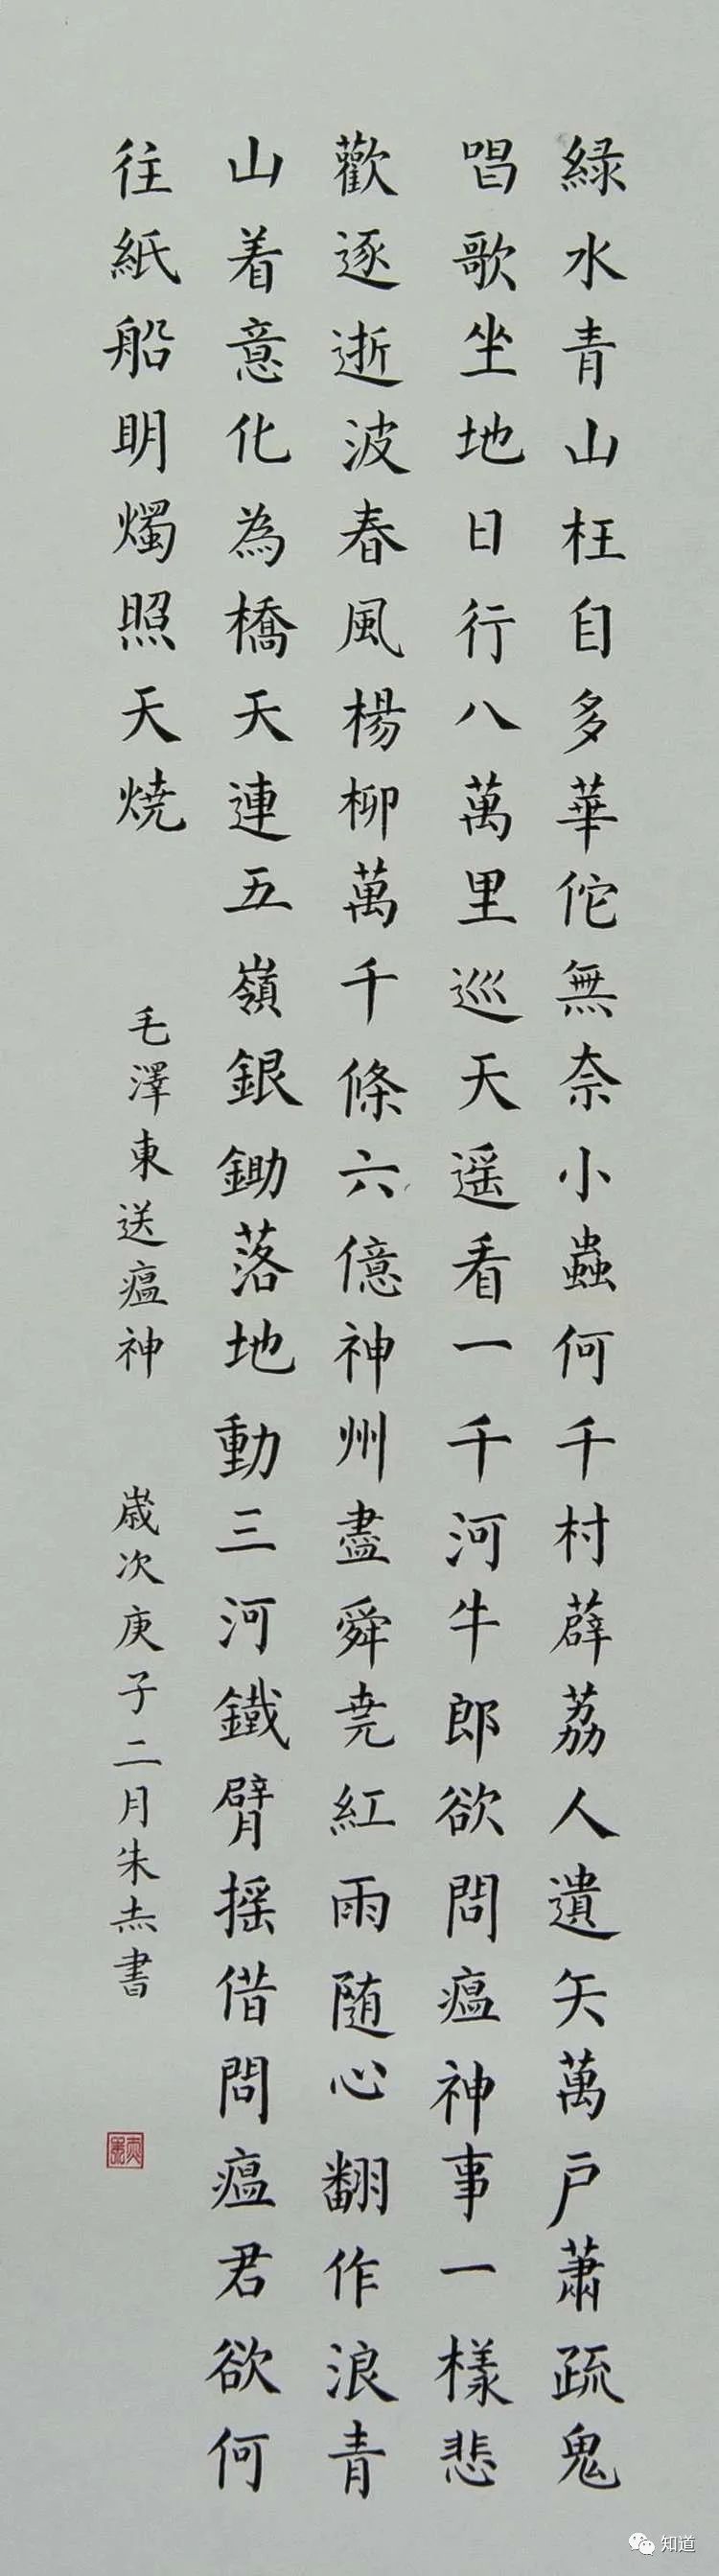 緑水青山枉自多華佗無奈小蟲何千村薜荔人遺矢萬戸蕭疏鬼
唱歌坐地日行八萬里巡天遥看一千河牛郎欲問瘟神事一樣悲
歡逐逝波春風楊柳萬千條六億神州盡舜尭紅雨随心翻作浪青
山着意化為橋天連五嶺銀鋤落地動三河鐵臂摇借問瘟君欲何
往紙船明燭照天焼
毛澤東送瘟神
歲次庚子二月朱杰書
知道